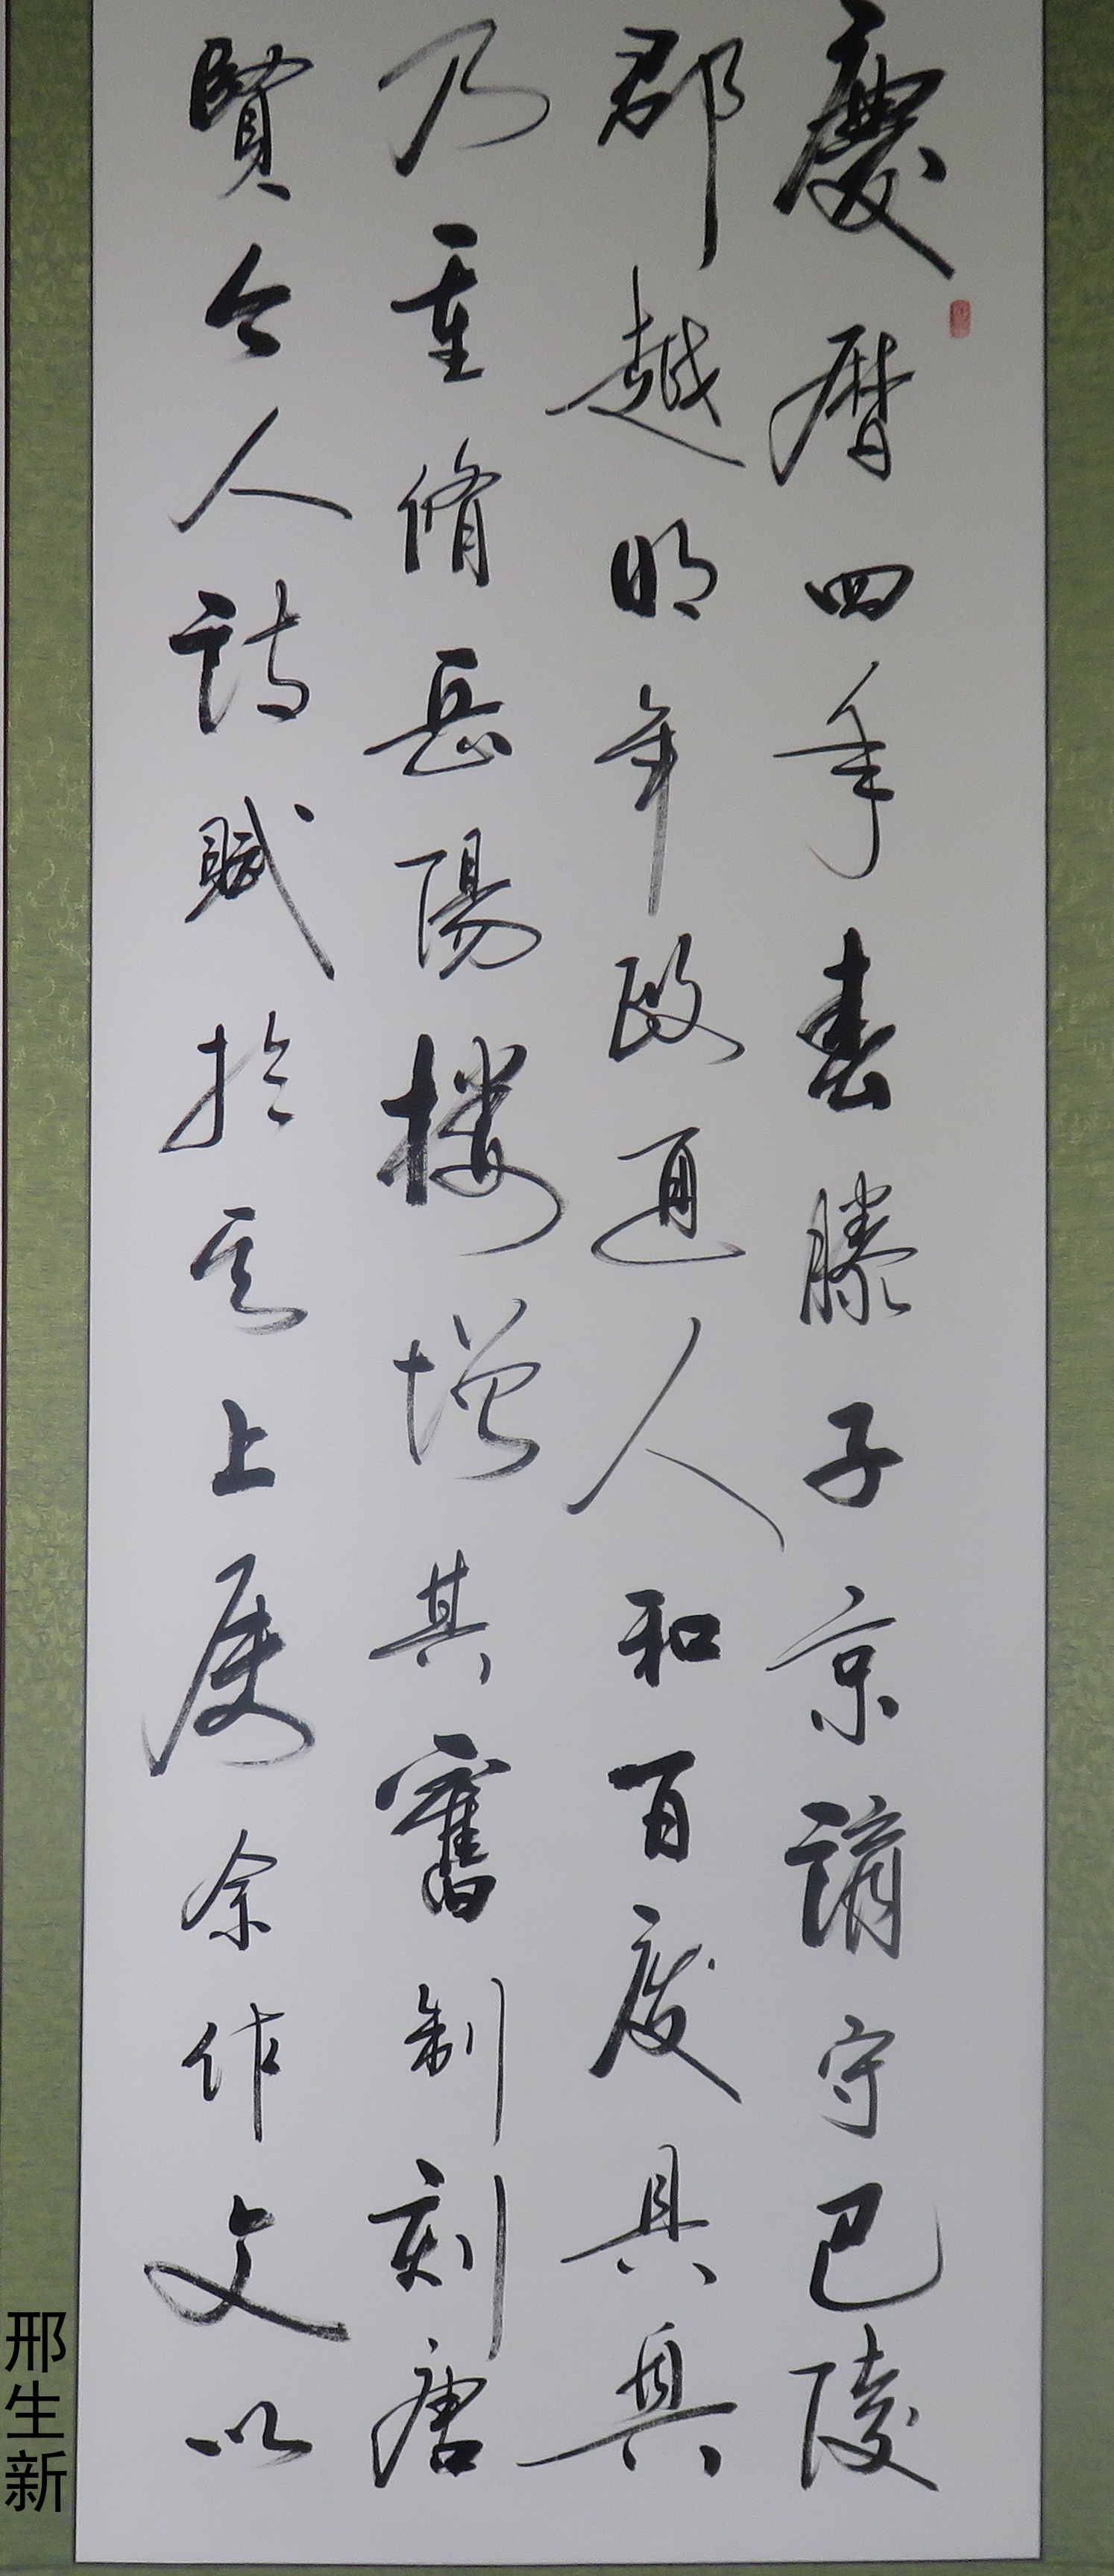 慶曆四年春滕子京謫守巴陵
郡越明年政通人和百廢具興
乃重脩岳陽樓增其舊制刻唐
賢今人詩賦於其上屬余作文以
邢生新